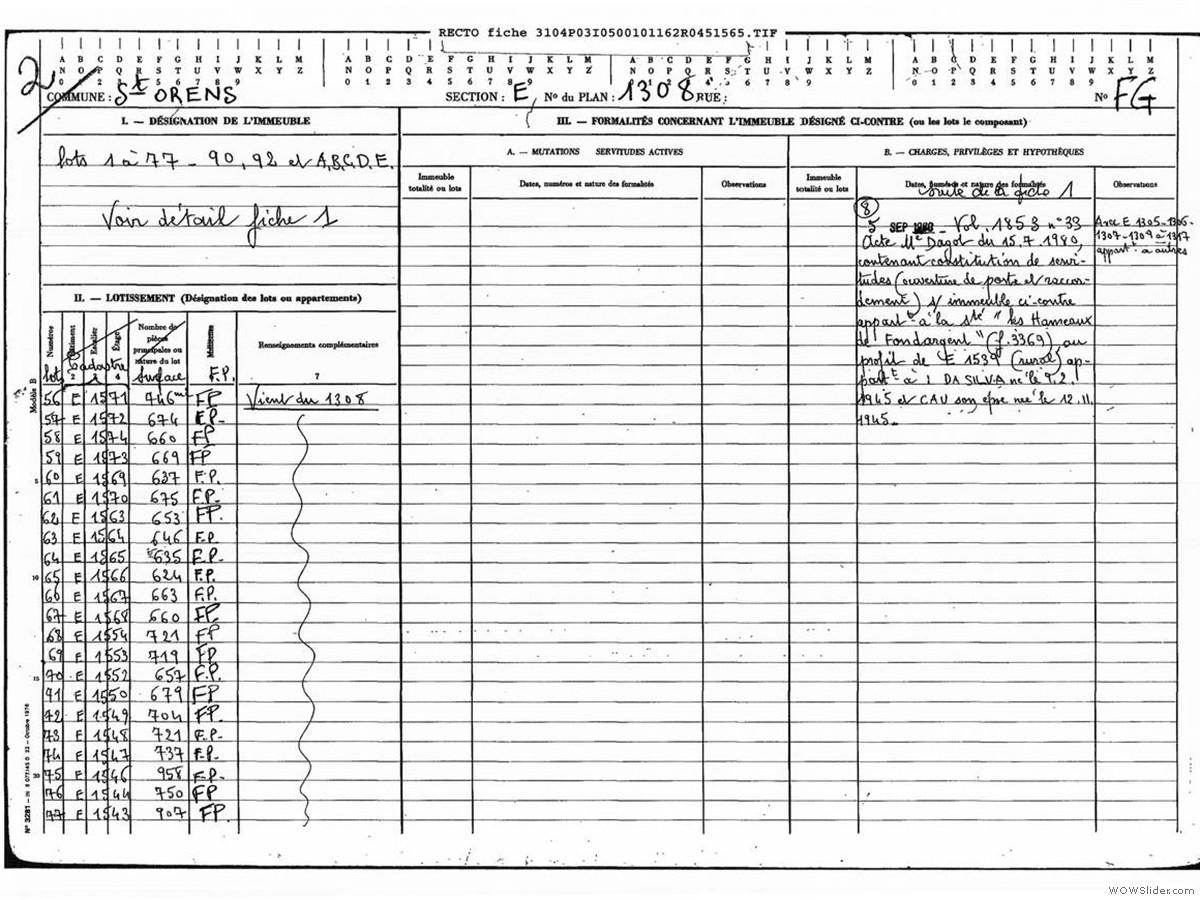 RECTO fiche 3104P03I0500101162R0451565.TIF
A B C D E F G H I J K L M
N O P Q R S T U V W X Y Z
0 1 2 3 4 5 6 7 8 9
2
COMMUNE : St ORENS
SECTION : E, No du PLAN : 1308 RUE :
No FG
I. — DÉSIGNATION DE L'IMMEUBLE
lots 1 à 77 - 90, 92 et A,B,C,D,E.
Voir détail fiche 1
II. — LOTISSEMENT (Désignation des lots ou appartements)
Numéros Bâtiment Escalier Étage Nombre de pièces principales ou nature du lot Millièmes Renseignements complémentaires
lots Cadastre Surface F.P.
2 4 7
56 E 1571 746 m² FP Vient du 1308
57 E 1572 674 F.P-
58 E 1574 660 FP
59 E 1573 669 FP
60 E 1569 637 F.P.
61 E 1570 675 F.P.
62 E 1563 653 FP.
63 E 1564 646 F.P.
64 E 1565 635 F.P.
65 E 1566 624 F.P.
66 E 1567 663 F.P.
67 E 1568 660 FP.
68 E 1554 721 FP
69 E 1553 719 FP
70 E 1552 657 F.P.
71 E 1550 679 FP
72 E 1549 704 FP.
73 E 1548 721 F.P.
74 E 1547 737 F.P.
75 E 1546 958 F.P.
76 E 1544 750 FP
77 E 1543 907 FP.
Modèle B
5
10
15
20
N° 3281
Octobre 1976
III. — FORMALITÉS CONCERNANT L'IMMEUBLE DÉSIGNÉ CI-CONTRE (ou les lots le composant)
A. — MUTATIONS SERVITUDES ACTIVES
Immeuble totalité ou lots
Dates, numéros et nature des formalités
Observations
B. — CHARGES, PRIVILÈGES ET HYPOTHÈQUES
Immeuble totalité ou lots
Dates, numéros et nature des formalités
Observations
suite de la fiche 1
8
5 SEP 1980 - Vol. 1853 n° 33
Acte Me Dagot du 15.7.1980,
contenant constitution de servi-
tudes (ouverture de porte et raccor-
dement) s/ immeuble ci-contre
appart^t à la sté "les Hameaux
de Fondargent" (f.3369) au
profit de E 1539 (rural) ap-
part^t à : DA SILVA né le 9.2.
1945 et CAU son epse née le 12.11.
1945.
Avec E 1305-1306-
1307-1309 à 1317
appart^t à autres
WOWSlider.com